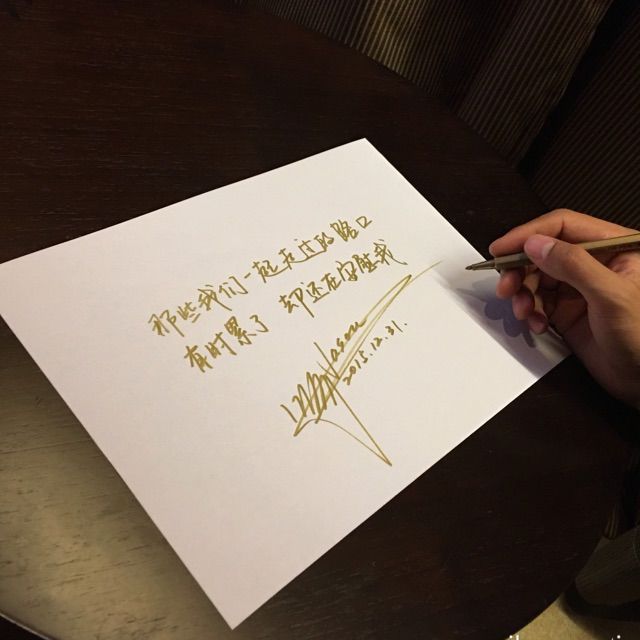 那些我们一起走过的路口
有时累了 却还在保护我
Jason
2015.12.31.